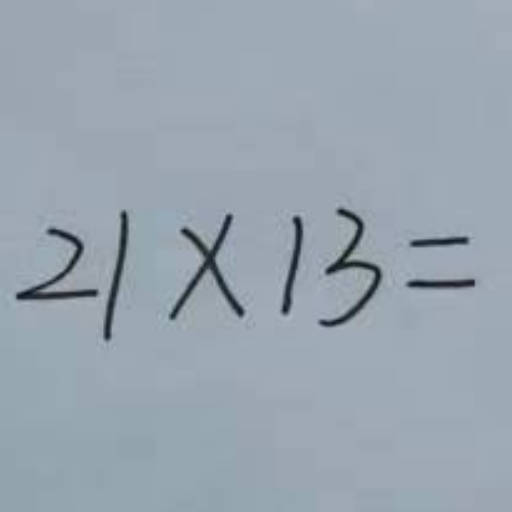 21×13=